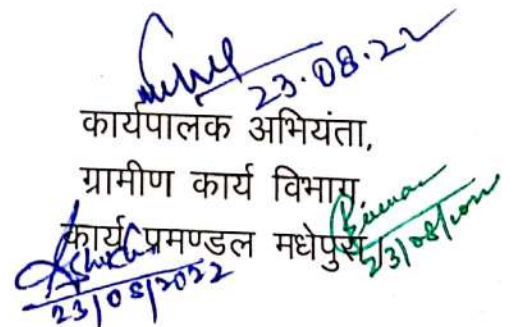 23.08.22
कार्यपालक अभियंता,
ग्रामीण कार्य विभाग,
कार्य प्रमण्डल मधेपुरा।
23/08/2022
23/08/2022